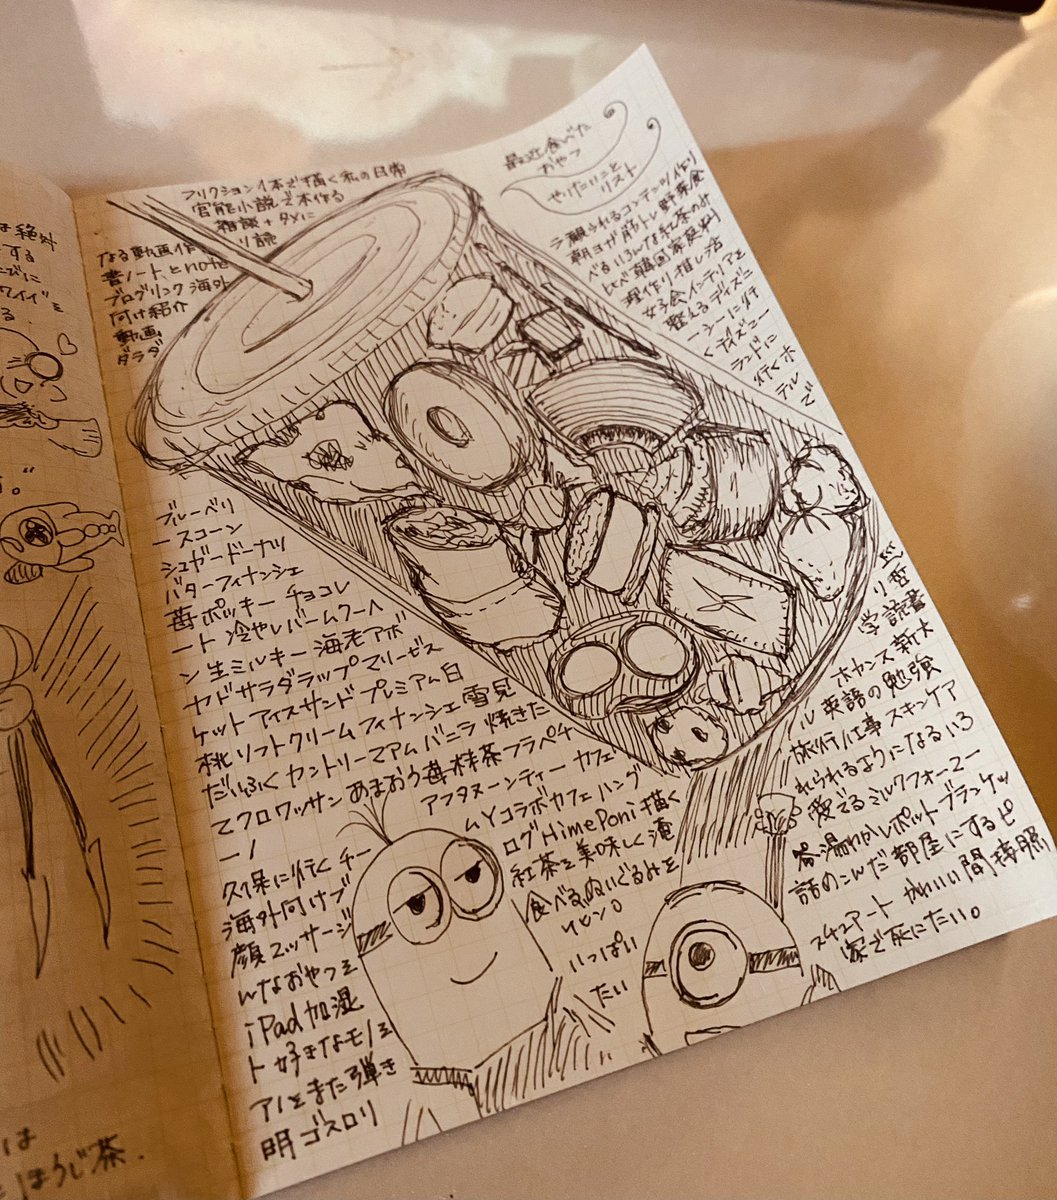 最近食べた
おやつ
やりたいこと
リスト
フリクション1本で描く私の日常
官能小説で本作る
雑談+タメに
なる動画作り 読
書ノートとnote
ブログリンク 海外
向け紹介
動画
ダラダ
ラ観られるコンテンツ作り
朝ヨガ 筋トレ 野菜食
べる いろんな紅茶のみ
比べ 韓国家庭料
理作り 推し活
女子会 インテリアを
整える ディズニ
ーシーに行
く ディズニー
ランドに
行く ホ
テルで
ブルーベリ
ースコーン
シュガードーナツ
バターフィナンシェ
苺ポッキー チョコレ
ート 冷やしバームクーヘ
ン 生ミルキー 海老アボ
カドサラダラップ マリービス
ケットアイスサンド プレミアム白
桃ソフトクリーム フィナンシェ 雪見
だいふく カントリーマアム バニラ 焼きた
てクロワッサン あまおう苺抹茶フラペチ
ーノ
アフタヌーンティー カフェ
ムY コラボカフェ ハング
久保に行く チー
海外向けブ
ログ HimePoni 描く
顔マッサージ
紅茶を美味しく淹
んなおやつを
食べる ぬいぐるみを
iPad 加湿
いっぱい
ト 好きなモノを
たい
アノをまた弾き
明 ゴスロリ
学 読書
ホカンス 新大
ル 英語の勉強
旅行 仕事 スキンケア
れられるようになる いろ
愛でる ミルクフォーマー
器 湯わかしポット ブランケッ
詰めこんだ部屋にする ピ
スチュアート かわいい間接照
家で死にたい。
は絶対
する
ほうじ茶.